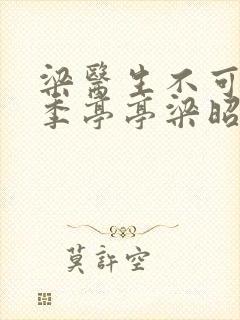 梁醫生不可
季亭亭梁昭
莫許空